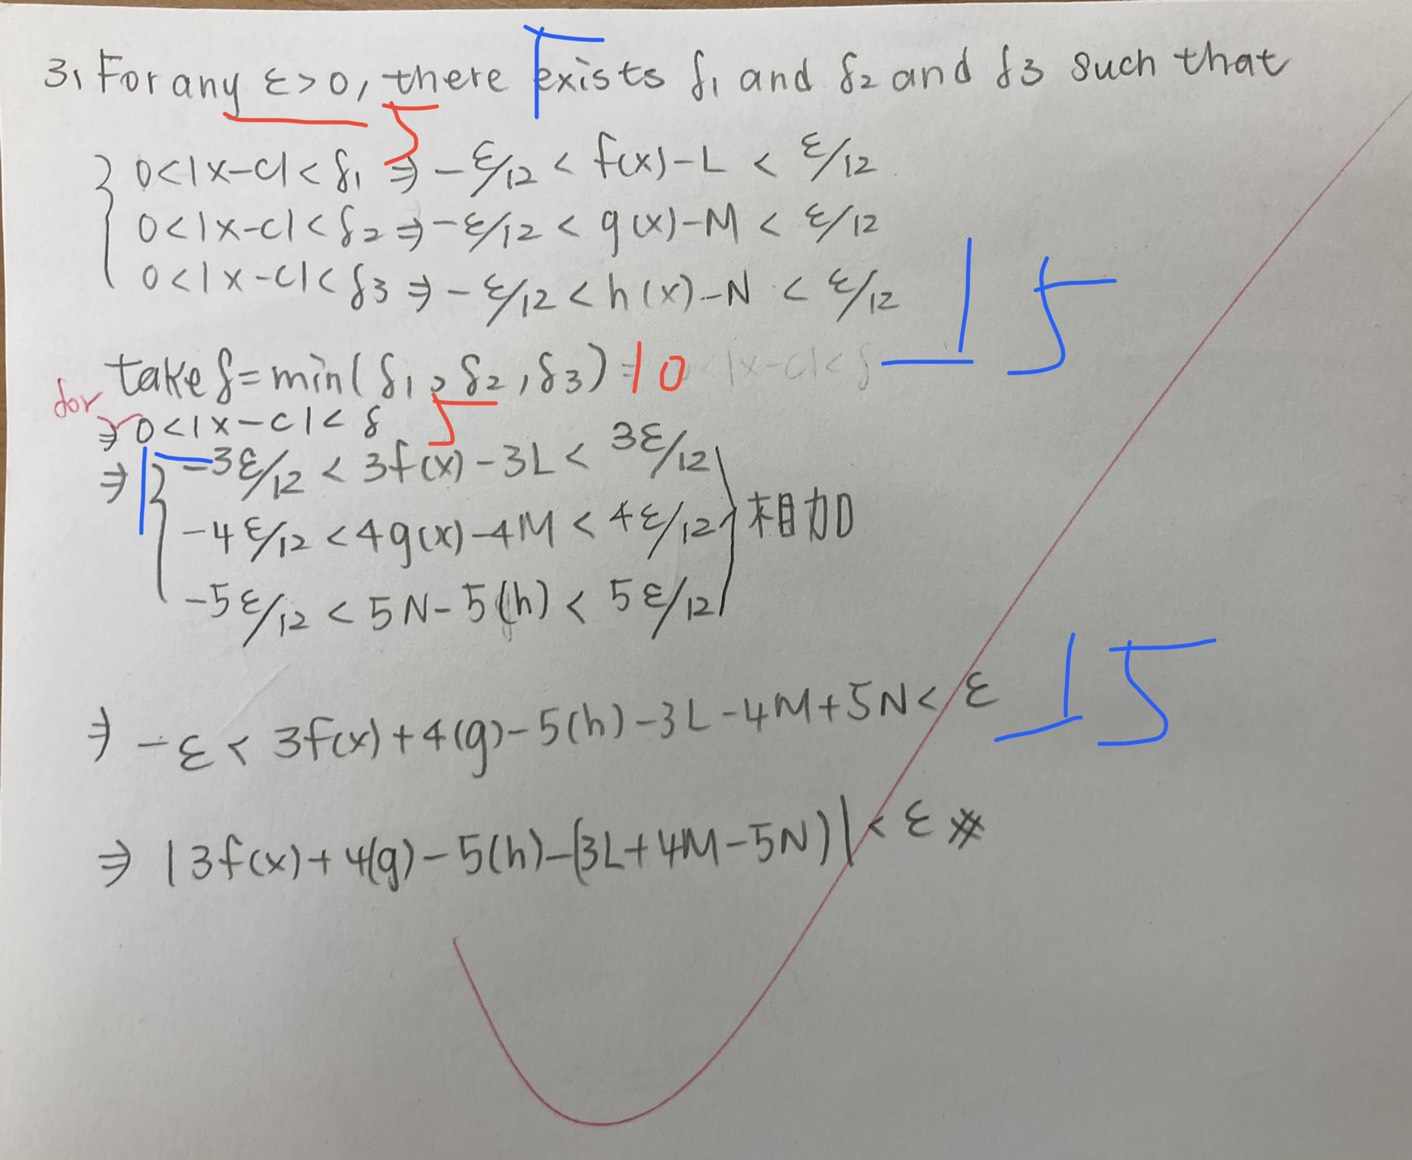 3, For any ε>0, there exists δ1 and δ2 and δ3 such that
5
0<|x-c|<δ1 ⇒ -ε/12 < f(x)-L < ε/12
0<|x-c|<δ2 ⇒ -ε/12 < g(x)-M < ε/12
0<|x-c|<δ3 ⇒ -ε/12 < h(x)-N < ε/12
15
take δ=min(δ1, δ2, δ3) 10 <|x-c|<δ
for
⇒ 0<|x-c|<δ 5
⇒ { -3ε/12 < 3f(x)-3L < 3ε/12
-4ε/12 < 4g(x)-4M < 4ε/12 } 相加
-5ε/12 < 5N-5(h) < 5ε/12
⇒ -ε < 3f(x)+4(g)-5(h)-3L-4M+5N < ε 15
⇒ |3f(x)+4(g)-5(h)-(3L+4M-5N)| < ε #